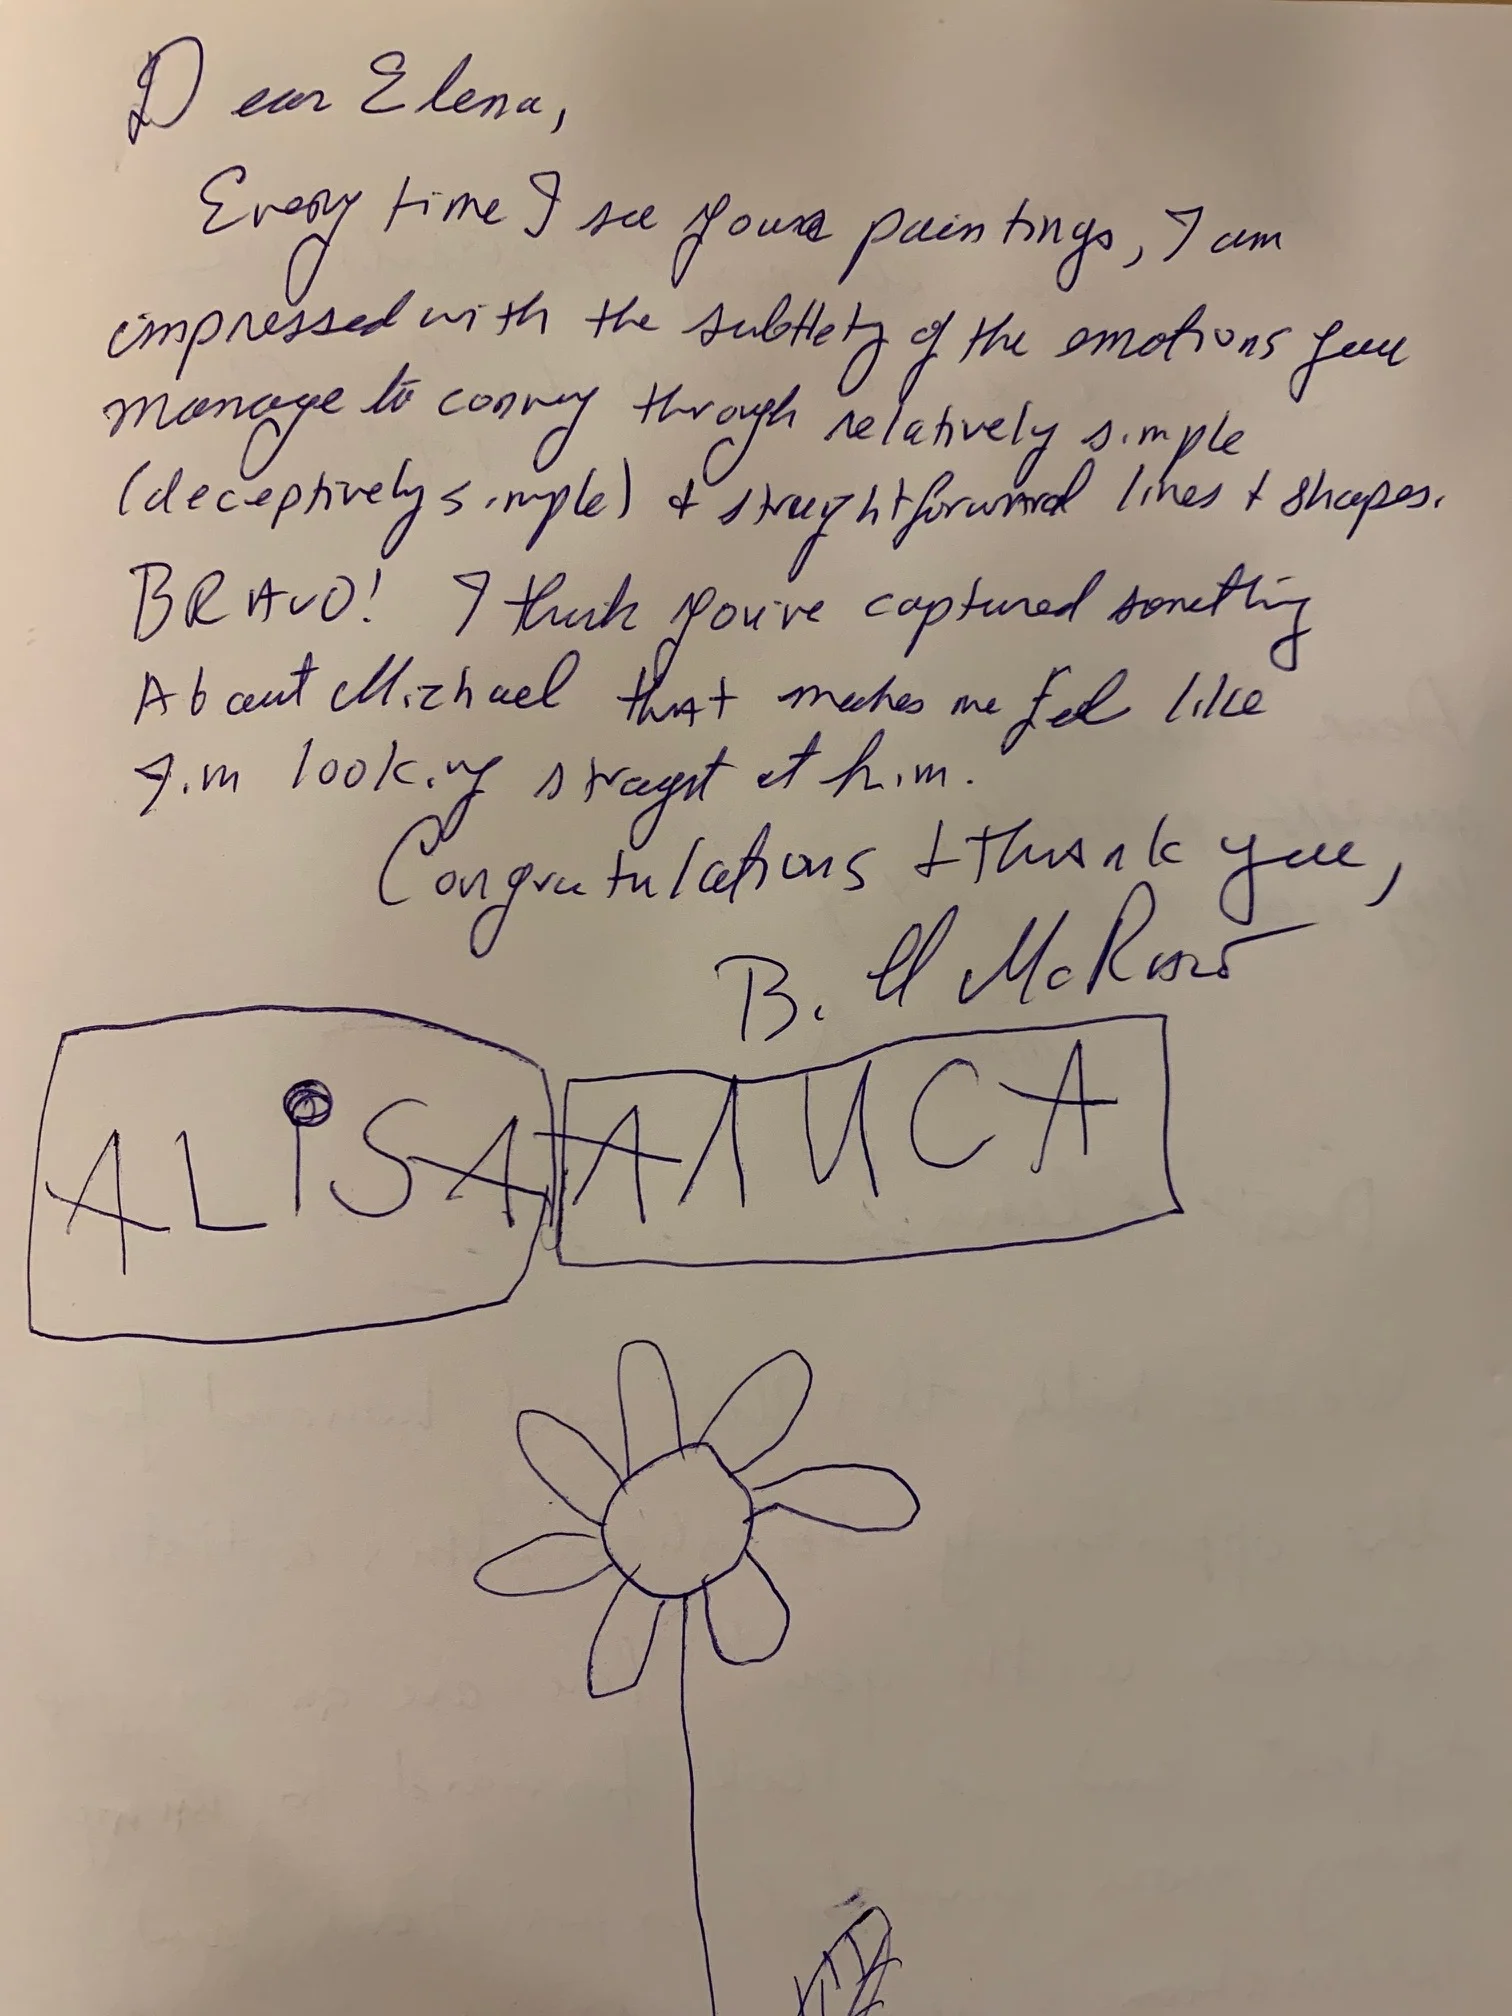 Dear Elena,
Every time I see your paintings, I am
impressed with the subtlety of the emotions you
manage to convey through relatively simple
(deceptively simple) + straightforward lines + shapes.
BRAVO! I think you've captured something
About Michael that makes me feel like
I'm looking straight at him.
Congratulations + thank you,
Bill
ALiSA АЛИСА